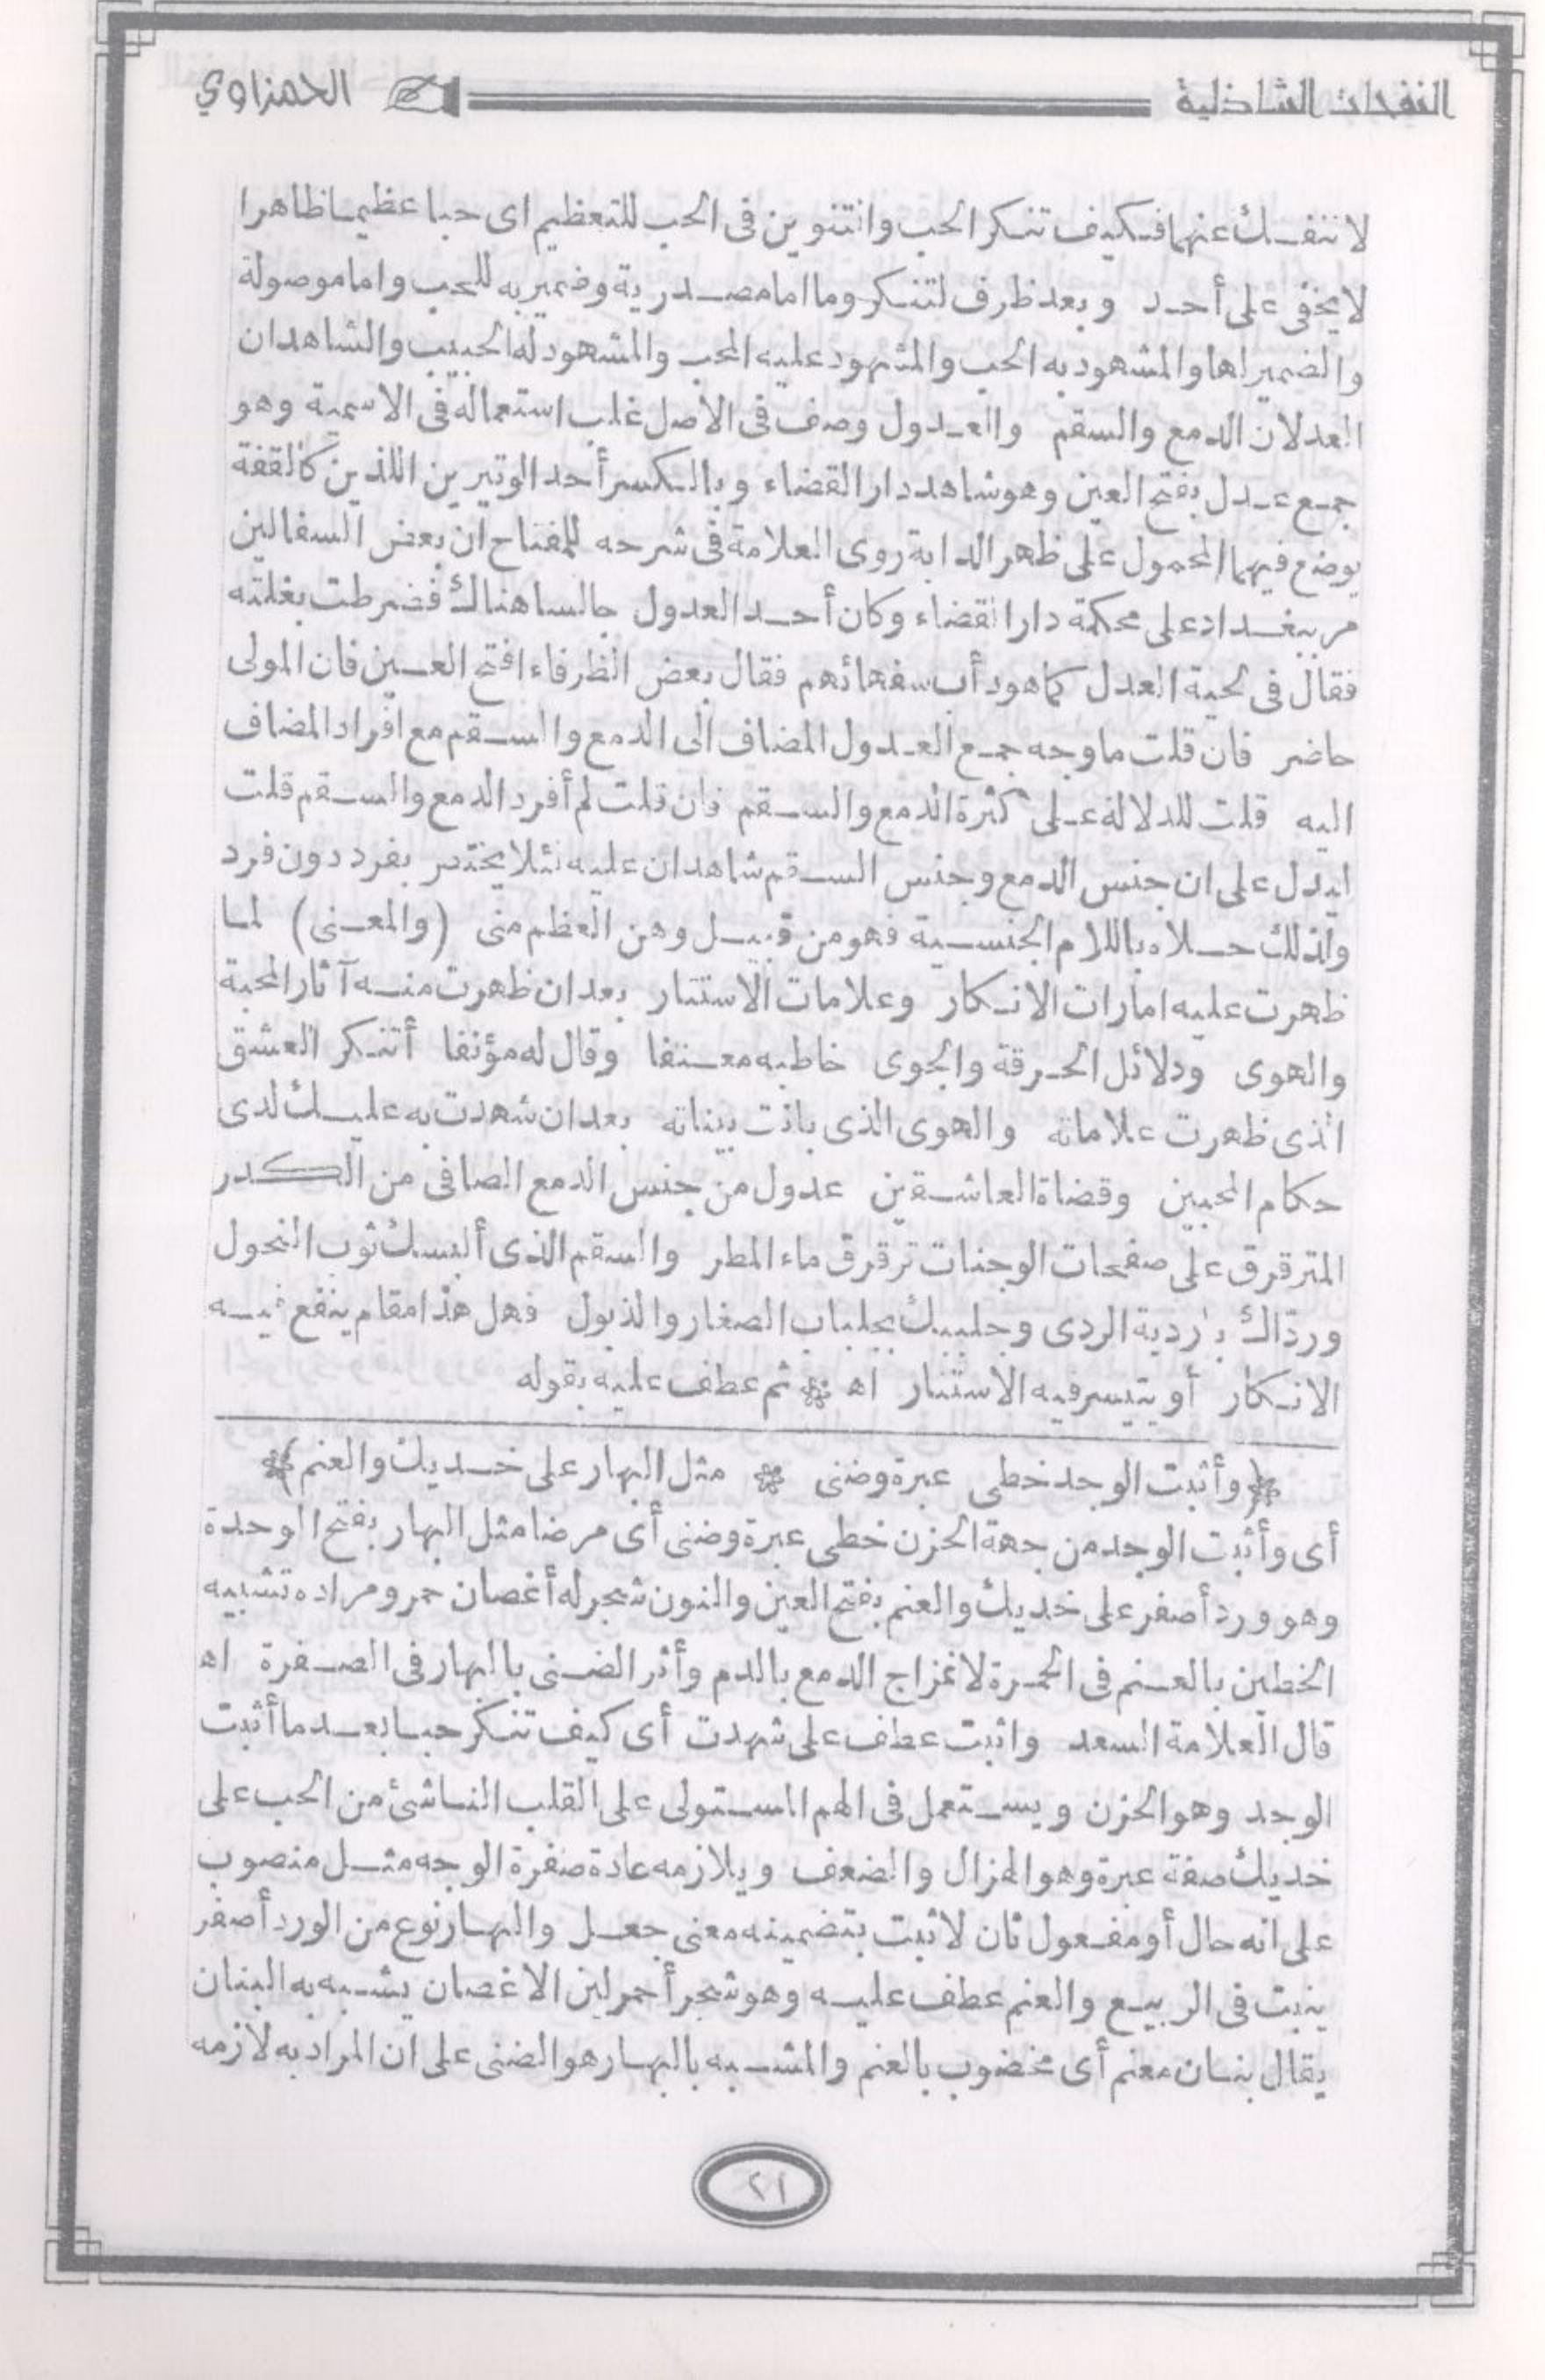 النفحات الشاذلية
الحمزاوي
لا تنفك عنهما فكيف تنكر الحب والتنوين فى الحب للتعظيم اى حبا عظيما ظاهرا
لا يخفى على أحد وبعد ظرف لتنكر وما اما مصدرية وضمير به للحب واما موصولة
والضمير لها والمشهود به الحب والمشهود عليه المحب والمشهود له الحبيب والشاهدان
العدلان الدمع والسقم والعدول وصف فى الأصل غلب استعماله فى الاسمية وهو
جمع عدل بفتح العين وهو شاهد دار القضاء وبالكسر أحد الوتيرين اللذين كالقفة
يوضع فيهما المحمول على ظهر الدابة روى العلامة فى شرحه للمفتاح ان بعض السفالين
مر ببغداد على محكمة دار القضاء وكان أحد العدول جالسا هناك فضرطت بغلته
فقال فى لحية العدل كما هو دأب سفهائهم فقال بعض الظرفاء افتح العين فان المولى
حاضر فان قلت ما وجه جمع العدول المضاف الى الدمع والسقم مع افراد المضاف
اليه قلت للدلالة على كثرة الدمع والسقم فان قلت لم أفرد الدمع والسقم قلت
ليدل على ان جنس الدمع وجنس السقم شاهدان عليه لئلا يختص بفرد دون فرد
ولذلك حلاه باللام الجنسية فهو من قبيل وهن العظم منى (والمعنى) لما
ظهرت عليه امارات الانكار وعلامات الاستتار بعد ان ظهرت منه آثار المحبة
والهوى ودلائل الحرقة والجوى خاطبه معنفا وقال له مؤنفا أتنكر العشق
الذى ظهرت علاماته والهوى الذى بانت بيناته بعد ان شهدت به عليك لدى
حكام المحبين وقضاة العاشقين عدول من جنس الدمع الصافى من الكدر
المترقرق على صفحات الوجنات ترقرق ماء المطر والسقم الذى ألبسك ثوب النحول
وردّاك بأردية الردى وجلببك بجلباب الصغار والذبول فهل هذا مقام ينفع فيه
الانكار أو يتيسر فيه الاستتار اه * ثم عطف عليه بقوله
﴿وأثبت الوجد خطى عبرة وضنى * مثل البهار على خديك والعنم﴾
أى وأثبت الوجد من جهة الحزن خطى عبرة وضنى أى مرضا مثل البهار بفتح الوحدة
وهو ورد أصفر على خديك والعنم بفتح العين والنون شجر له أغصان حمر ومراده تشبيه
الخطين بالعنم فى الحمرة لامتزاج الدمع بالدم وأثر الضنى بالبهار فى الصفرة اه
قال العلامة السعد واثبت عطف على شهدت أى كيف تنكر حبا بعد ما أثبت
الوجد وهو الحزن ويستعمل فى الهم المستولى على القلب الناشئ من الحب على
خديك صفة عبرة وهو الهزال والضعف ويلازمه عادة صفرة الوجه مثل منصوب
على انه حال أو مفعول ثان لاثبت بتضمينه معنى جعل والبهار نوع من الورد أصفر
ينبت فى الربيع والعنم عطف عليه وهو شجر أحمر لين الاغصان يشبه به البنان
يقال بنان معنم أى مخضوب بالعنم والمشبه بالبهار هو الضنى على ان المراد به لازمه
٢١